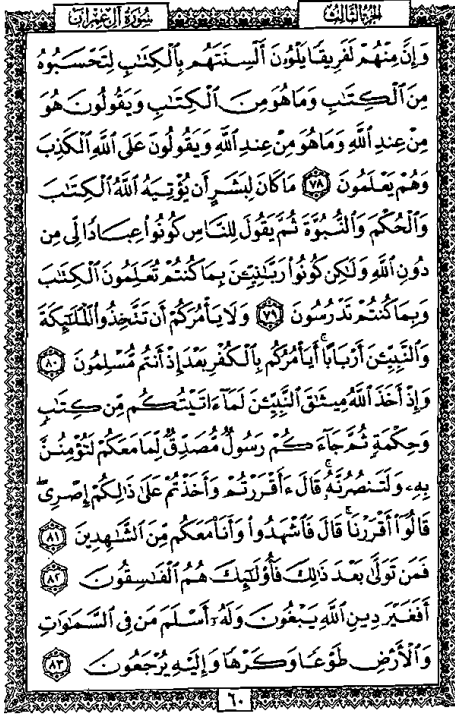 سُورَةُ آلِ عِمْرَانَ الجزء الثالث
وَإِنَّ مِنْهُمْ لَفَرِيقًا يَلْوُۥنَ أَلْسِنَتَهُم بِٱلْكِتَٰبِ لِتَحْسَبُوهُ
مِنَ ٱلْكِتَٰبِ وَمَا هُوَ مِنَ ٱلْكِتَٰبِ وَيَقُولُونَ هُوَ
مِنْ عِندِ ٱللَّهِ وَمَا هُوَ مِنْ عِندِ ٱللَّهِ وَيَقُولُونَ عَلَى ٱللَّهِ ٱلْكَذِبَ
وَهُمْ يَعْلَمُونَ ٧٨ مَا كَانَ لِبَشَرٍ أَن يُؤْتِيَهُ ٱللَّهُ ٱلْكِتَٰبَ
وَٱلْحُكْمَ وَٱلنُّبُوَّةَ ثُمَّ يَقُولَ لِلنَّاسِ كُونُوا۟ عِبَادًا لِّى مِن
دُونِ ٱللَّهِ وَلَٰكِن كُونُوا۟ رَبَّٰنِيِّۦنَ بِمَا كُنتُمْ تُعَلِّمُونَ ٱلْكِتَٰبَ
وَبِمَا كُنتُمْ تَدْرُسُونَ ٧٩ وَلَا يَأْمُرَكُمْ أَن تَتَّخِذُوا۟ ٱلْمَلَٰٓئِكَةَ
وَٱلنَّبِيِّۦنَ أَرْبَابًا ۗ أَيَأْمُرُكُم بِٱلْكُفْرِ بَعْدَ إِذْ أَنتُم مُّسْلِمُونَ ٨٠
وَإِذْ أَخَذَ ٱللَّهُ مِيثَٰقَ ٱلنَّبِيِّۦنَ لَمَآ ءَاتَيْتُكُم مِّن كِتَٰبٍ
وَحِكْمَةٍ ثُمَّ جَآءَكُمْ رَسُولٌ مُّصَدِّقٌ لِّمَا مَعَكُمْ لَتُؤْمِنُنَّ
بِهِۦ وَلَتَنصُرُنَّهُۥ ۚ قَالَ ءَأَقْرَرْتُمْ وَأَخَذْتُمْ عَلَىٰ ذَٰلِكُمْ إِصْرِى ۖ
قَالُوٓا۟ أَقْرَرْنَا ۚ قَالَ فَٱشْهَدُوا۟ وَأَنَا۠ مَعَكُم مِّنَ ٱلشَّٰهِدِينَ ٨١
فَمَن تَوَلَّىٰ بَعْدَ ذَٰلِكَ فَأُو۟لَٰٓئِكَ هُمُ ٱلْفَٰسِقُونَ ٨٢
أَفَغَيْرَ دِينِ ٱللَّهِ يَبْغُونَ وَلَهُۥٓ أَسْلَمَ مَن فِى ٱلسَّمَٰوَٰتِ
وَٱلْأَرْضِ طَوْعًا وَكَرْهًا وَإِلَيْهِ يُرْجَعُونَ ٨٣
٦٠